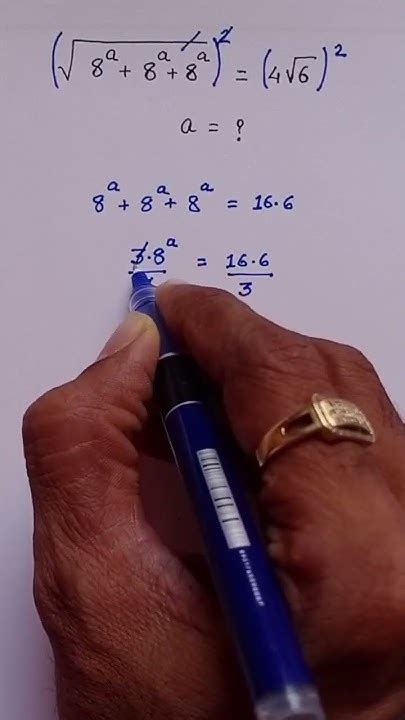 (√8^a + 8^a + 8^a)^2 = (4√6)^2
a = ?
8^a + 8^a + 8^a = 16·6
3·8^a = 16·6
3